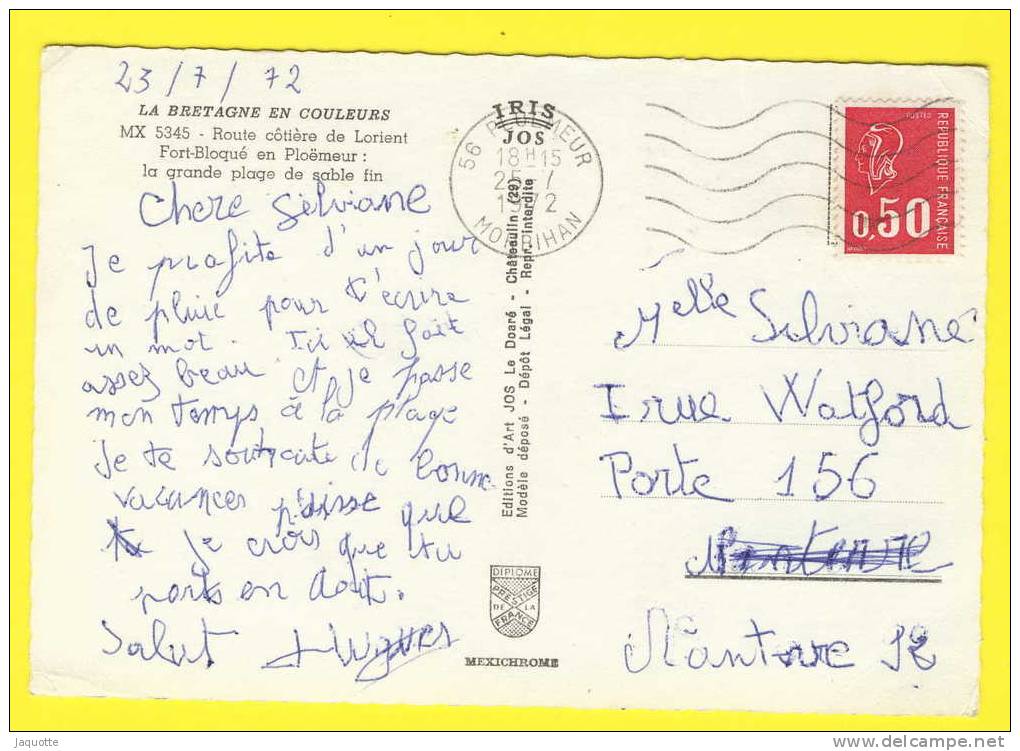 23/7/72
LA BRETAGNE EN COULEURS
MX 5345 - Route côtière de Lorient
Fort-Bloqué en Ploëmeur :
la grande plage de sable fin
Chere Silviane
Je profite d'un jour
de pluie pour t'écrire
un mot. Ici il fait
assez beau et je passe
mon temps à la plage
Je te souhaite de bonne
vacances puisse que
je crois que tu
parts en Août.
Salut
IRIS
JOS
56 PLOEMEUR
18H15
25-7
1972
MORBIHAN
Editions d'Art JOS Le Doaré - Châteaulin (29)
Modèle déposé - Dépôt Légal - Repr. Interdite
DIPLOME
PRESTIGE
DE LA
FRANCE
MEXICHROME
POSTES
REPUBLIQUE FRANÇAISE
0,50
Melle Silviane
1 rue Watford
Porte 156
Nanterre
Nanterre 92
Jaquotte
www.delcampe.net